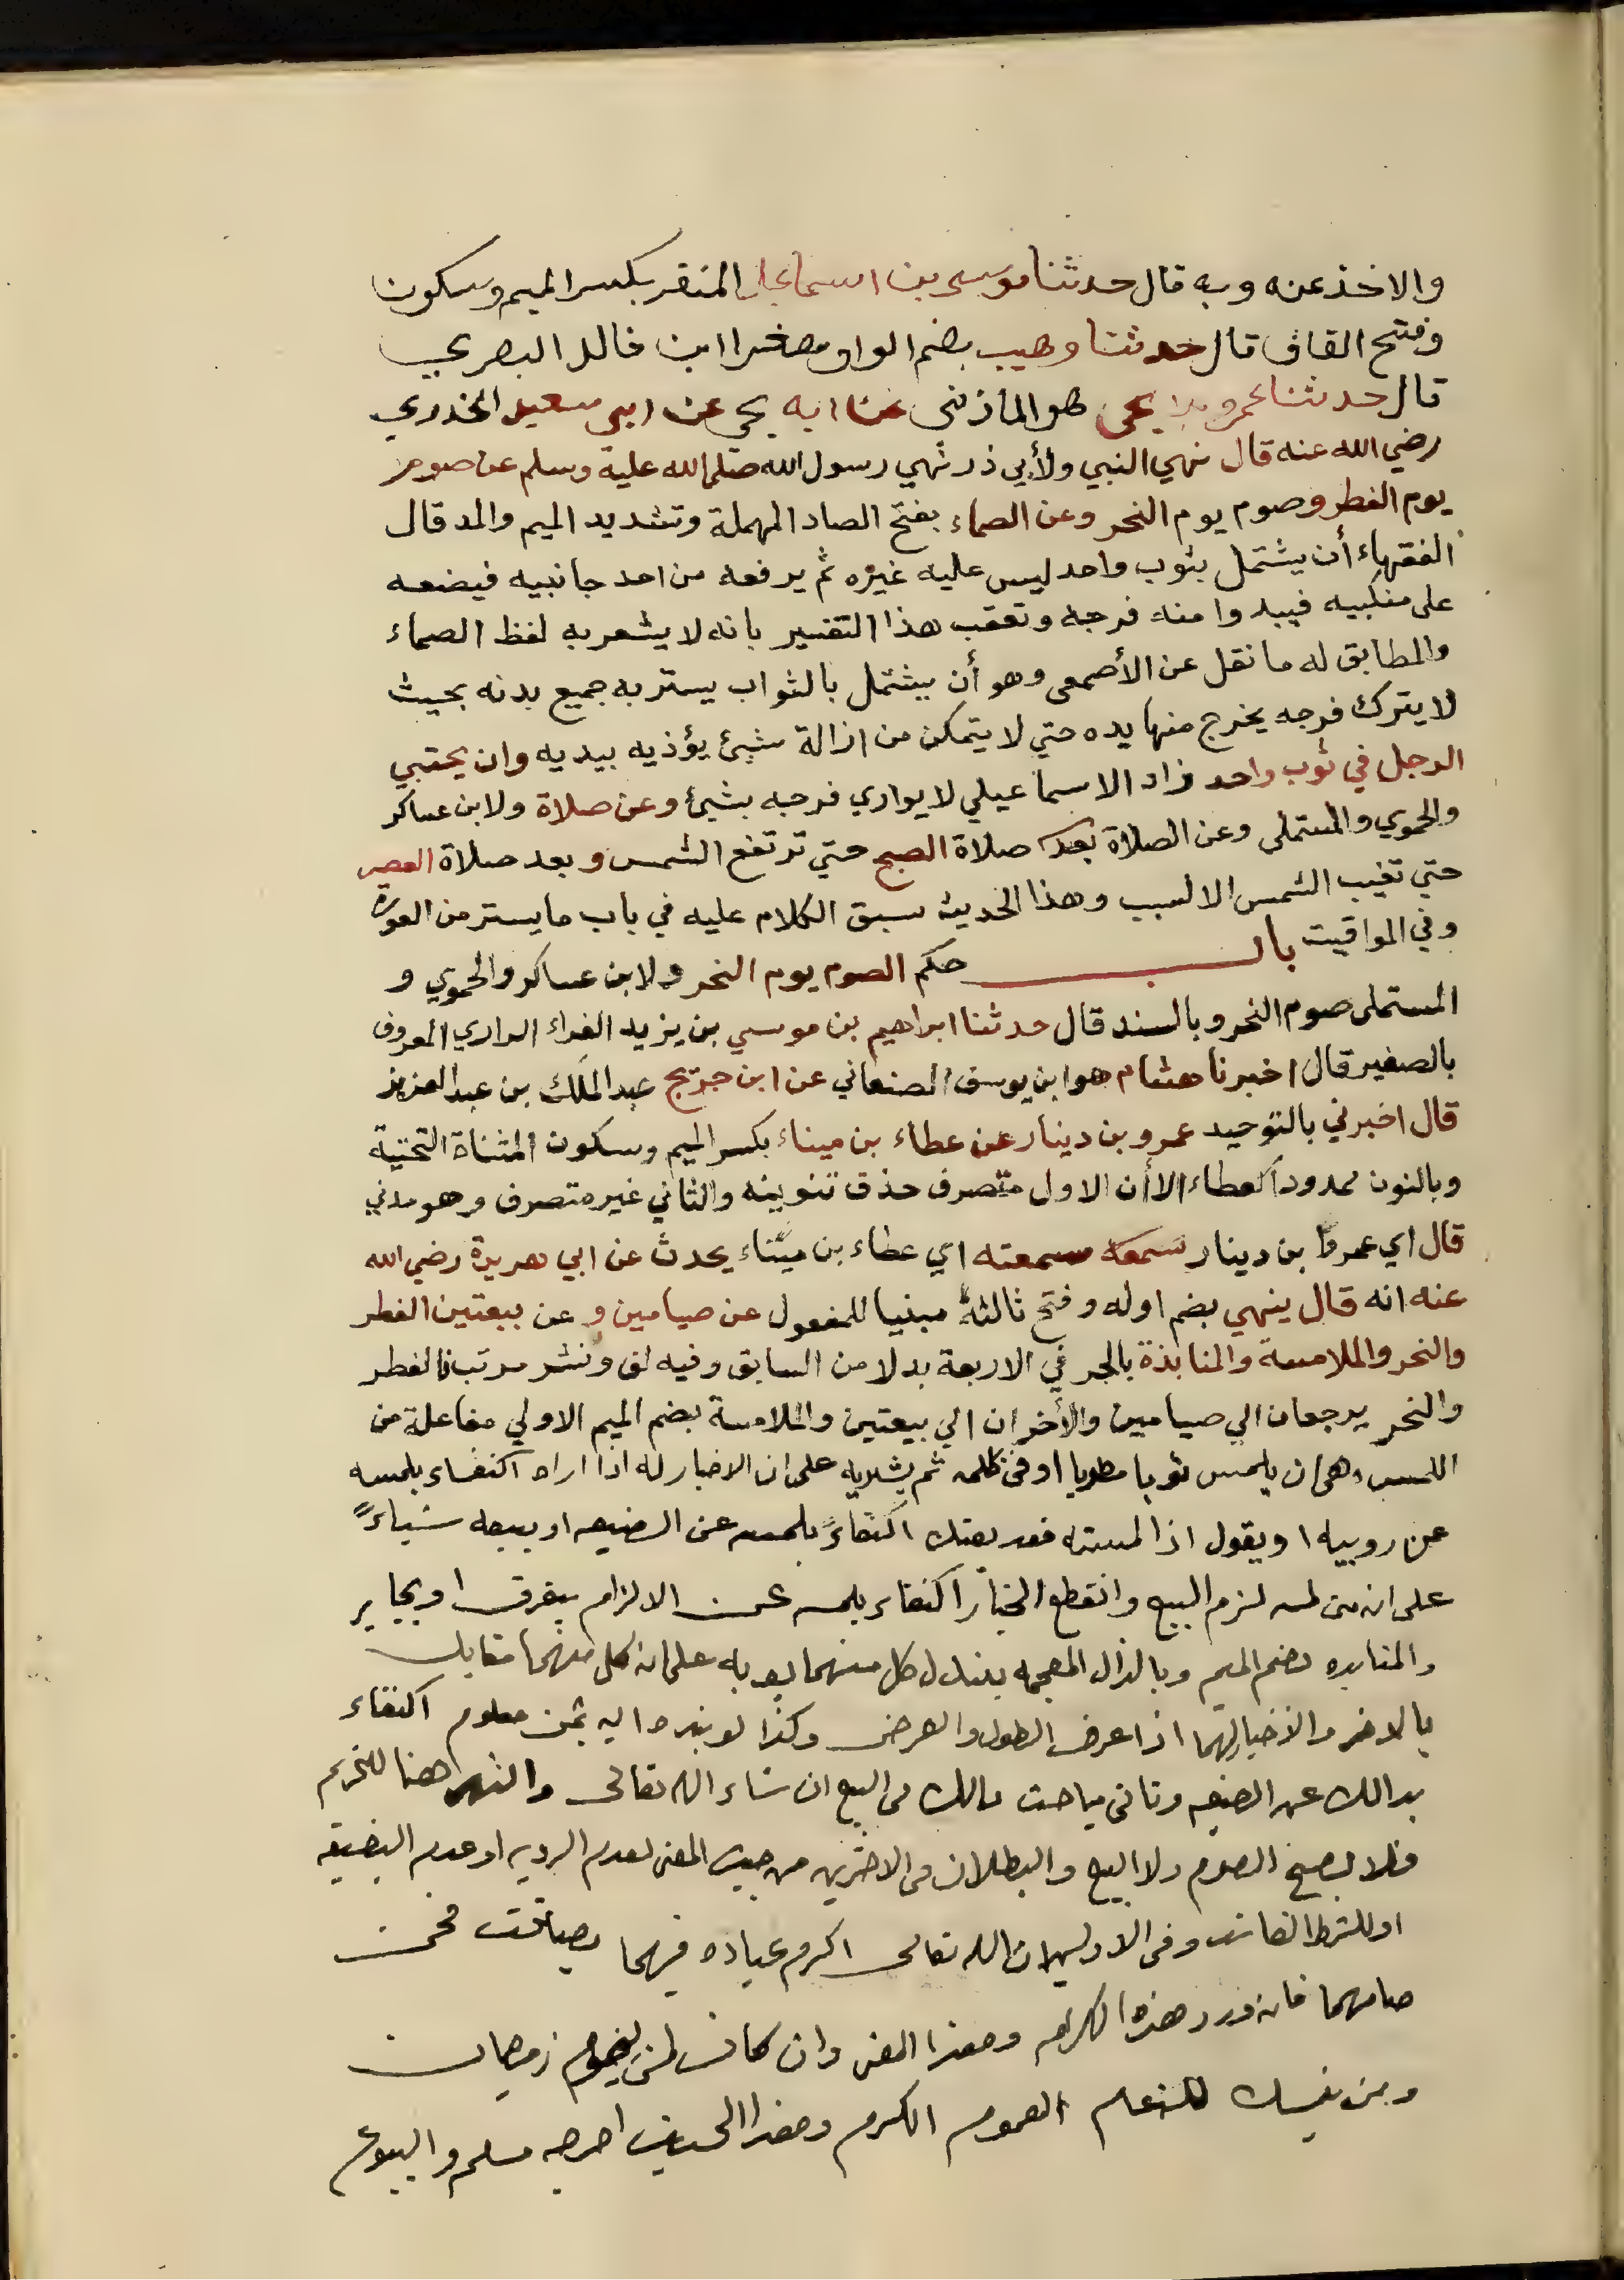 والاخذ عنه وبه قال حدثنا موسى بن اسماعيل المنقر بكسر الميم وسكون
وفتح القاف قال حدثنا وهيب بضم الواو مصغرا ابن خالد البصري
قال حدثنا عمرو بن يحيى هو المازني عن ابيه يحي عن ابي سعيد الخدري
رضي الله عنه قال نهي النبي ولأبي ذر نهي رسول الله صلى الله عليه وسلم عن صوم
يوم الفطر وصوم يوم النحر وعن الصماء بفتح الصاد المهملة وتشديد الميم والمد قال
الفقهاء أن يشتمل بثوب واحد ليس عليه غيره ثم يرفعه من احد جانبيه فيضعه
على منكبيه فيبدوا منه فرجه وتعقب هذا التفسير بانه لا يشعر به لفظ الصماء
والمطابق له ما نقل عن الأصمعي وهو أن يشتمل بالثواب يستر به جميع بدنه بحيث
لا يترك فرجه يخرج منها يده حتي لا يتمكن من ازالة شيئ يؤذيه بيديه وان يحتبي
الرجل في ثوب واحد زاد الاسماعيلي لا يواري فرجه بشيئ وعن صلاة ولابن عساكر
والحموي والمستملى وعن الصلاة بعد صلاة الصبح حتي ترتفع الشمس وبعد صلاة العصر
حتي تغيب الشمس الا لسبب وهذا الحديث سبق الكلام عليه في باب ما يستر من العورة
وفي المواقيت باب حكم الصوم يوم النحر ولابن عساكر والحموي و
المستملى صوم النحر وبالسند قال حدثنا ابراهيم بن موسي بن يزيد الفراء الرازي المعروف
بالصغير قال اخبرنا هشام هو ابن يوسف الصنعاني عن ابن جريج عبد الملك بن عبد العزيز
قال اخبرني بالتوحيد عمرو بن دينار عن عطاء بن ميناء بكسر الميم وسكون المثناة التحتية
وبالنون ممدودا كعطاء الا أن الاول متصرف حذف تنوينه والثاني غير متصرف وهو مدني
قال اي عمرو بن دينار سمعه سمعته اي عطاء بن ميناء يحدث عن ابي هريرة رضي الله
عنه انه قال ينهي بضم اوله وفتح ثالثه مبنيا للمفعول عن صيامين و عن بيعتين الفطر
والنحر والملامسة والمنابذة بالجر في الاربعة بدلا من السابق وفيه لف ونشر مرتب فالفطر
والنحر يرجعان الي صيامين والأخران الي بيعتين والملامسة بضم الميم الاولي مفاعلة من
اللمس وهى ان يلمس ثوبا مطويا او في ظلمه ثم يشتريه على ان لاخيار له اذا اراه اكتفاء بلمسه
عن رويته او يقول اذا لمسته فقد بعتك اكتفاءً بلمسه عن الصيغه او يبيعه شياءً
على انه متى لمسه لزم البيع وانقطع الخيار اكتفاء بلمسه عن الالزام بتفرق او تخاير
والمنابذه بضم الميم وبالذال المعجمه بنبذ كل منهما ثوبه على ان كل منهما مقابل
بالاخر ولاخيار لهما اذا عرف الطول والعرض وكذا لو نبذه اليه بثمن معلوم اكتفاء
بذالك عن الصيغه وتاتي مباحث ذالك في البيع ان شاء الله تعالى والنهي هنا للتحريم
فلا يصح الصوم ولا البيع والبطلان في الاخيرين من حيث المعنى لعدم الرويه او عدم الصيغه
او للشرط الفاسد وفي الاولين ان الله تعالى اكرم عباده فيهما بضيافته فمن
صامهما فانه ورد هذه الكرامه وهذا المعنى وان كان
العموم الكرم وهذا الحديث اخرجه مسلم و البيوع